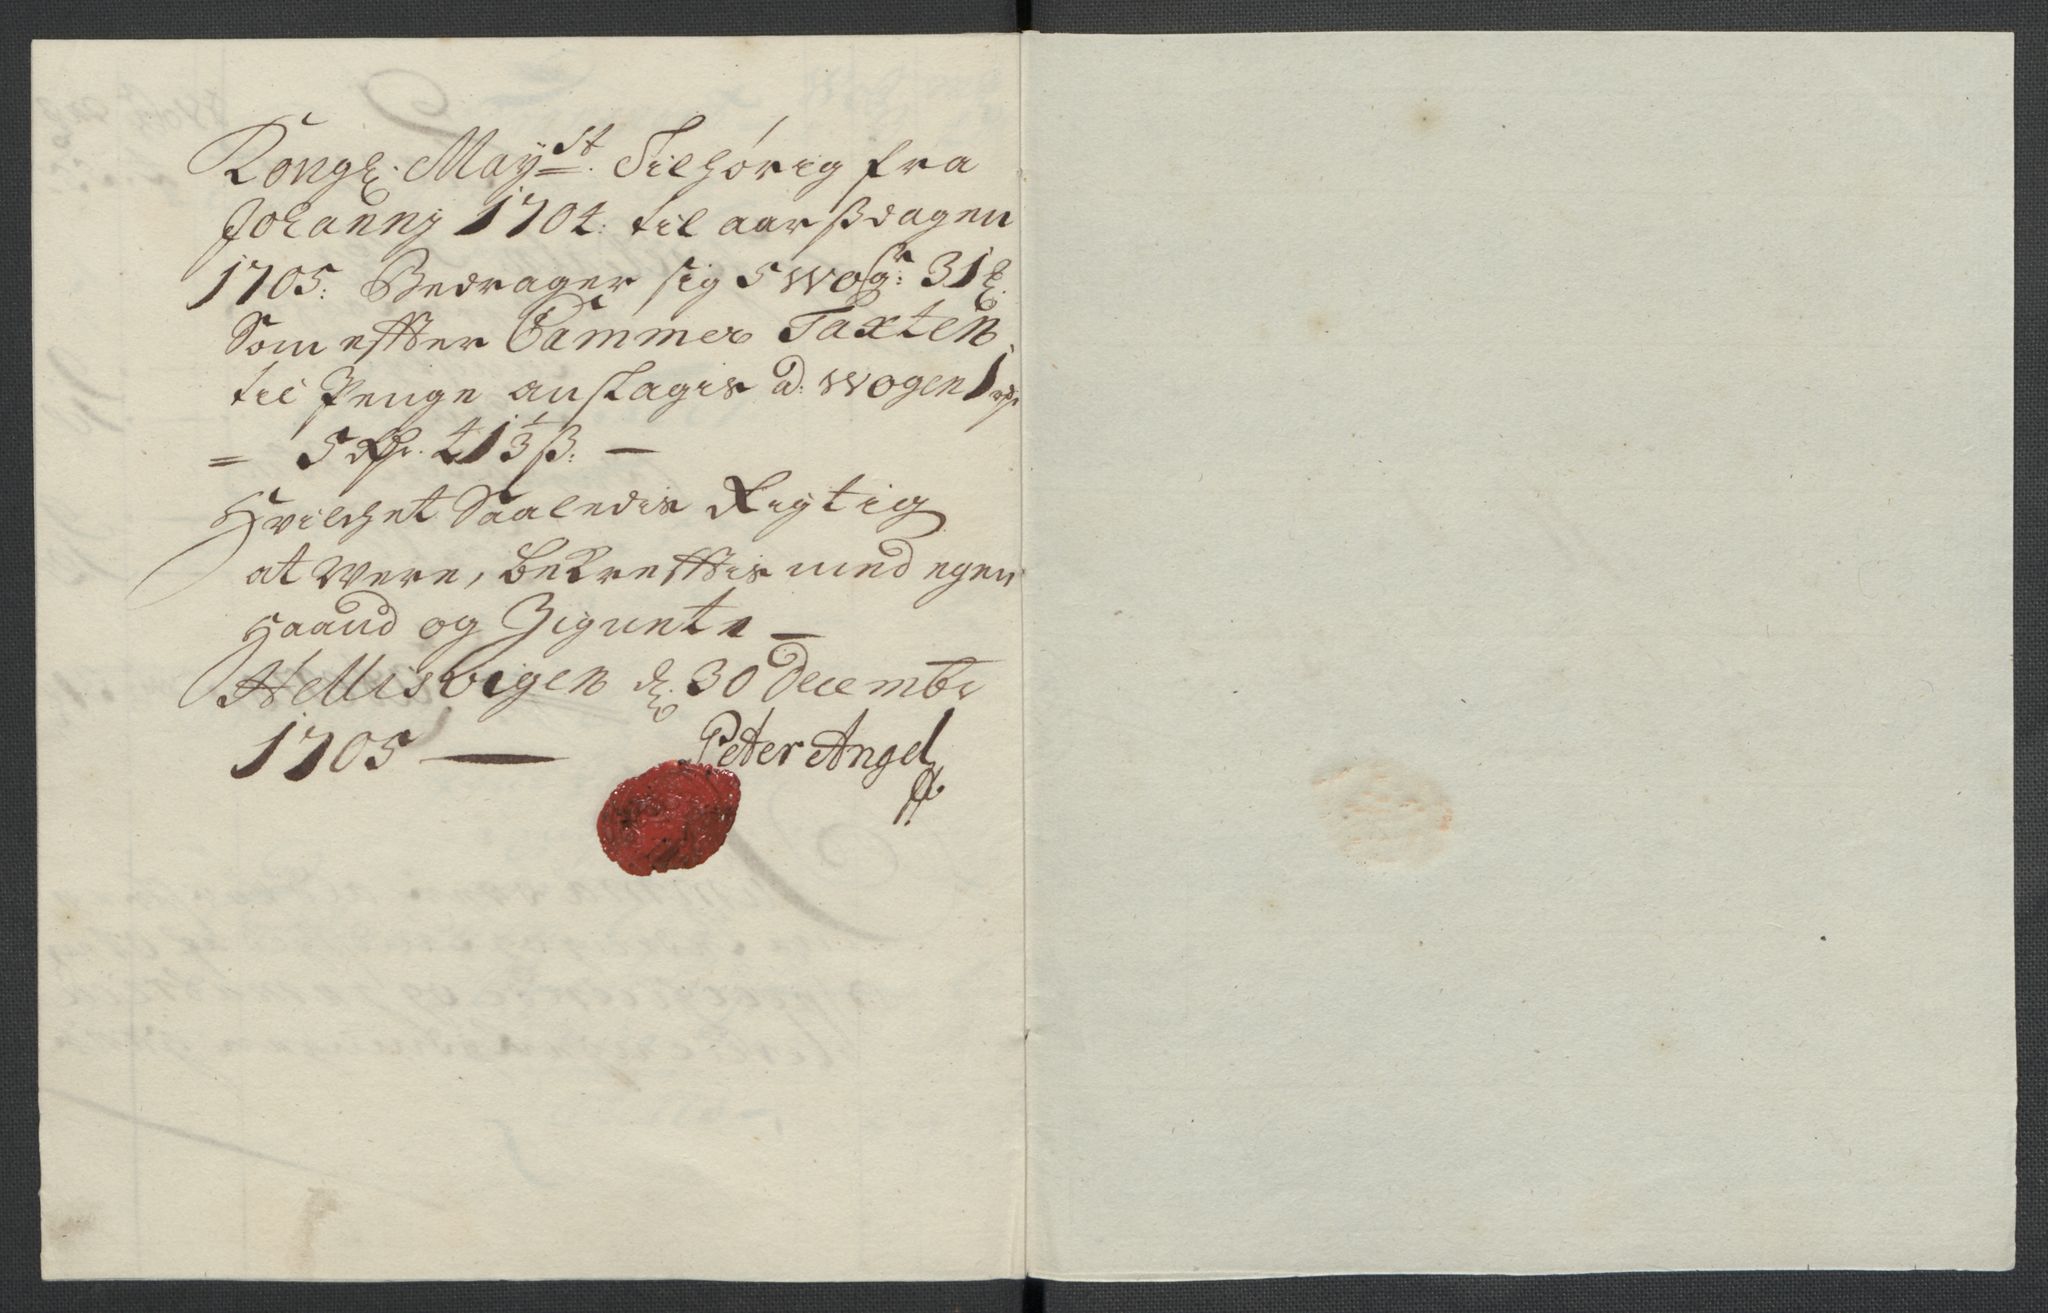 Kongl. Mayst. Tilhørig fra
Johannj 1704: til aarßdagen
1705: Bedrager sig 5 wogr: 31 ℔.
Som effter Cammer Taxten
til Penge anslagis a: wogen 1 rdr
= 5 Rdr. 41⅓ ß: —
Hvilchet Saaledis Rigtig
at were, bekrefftis med egen
Haand og Zignete —
Hellisvigen d: 30 Decembr
1705 — Peter Angel